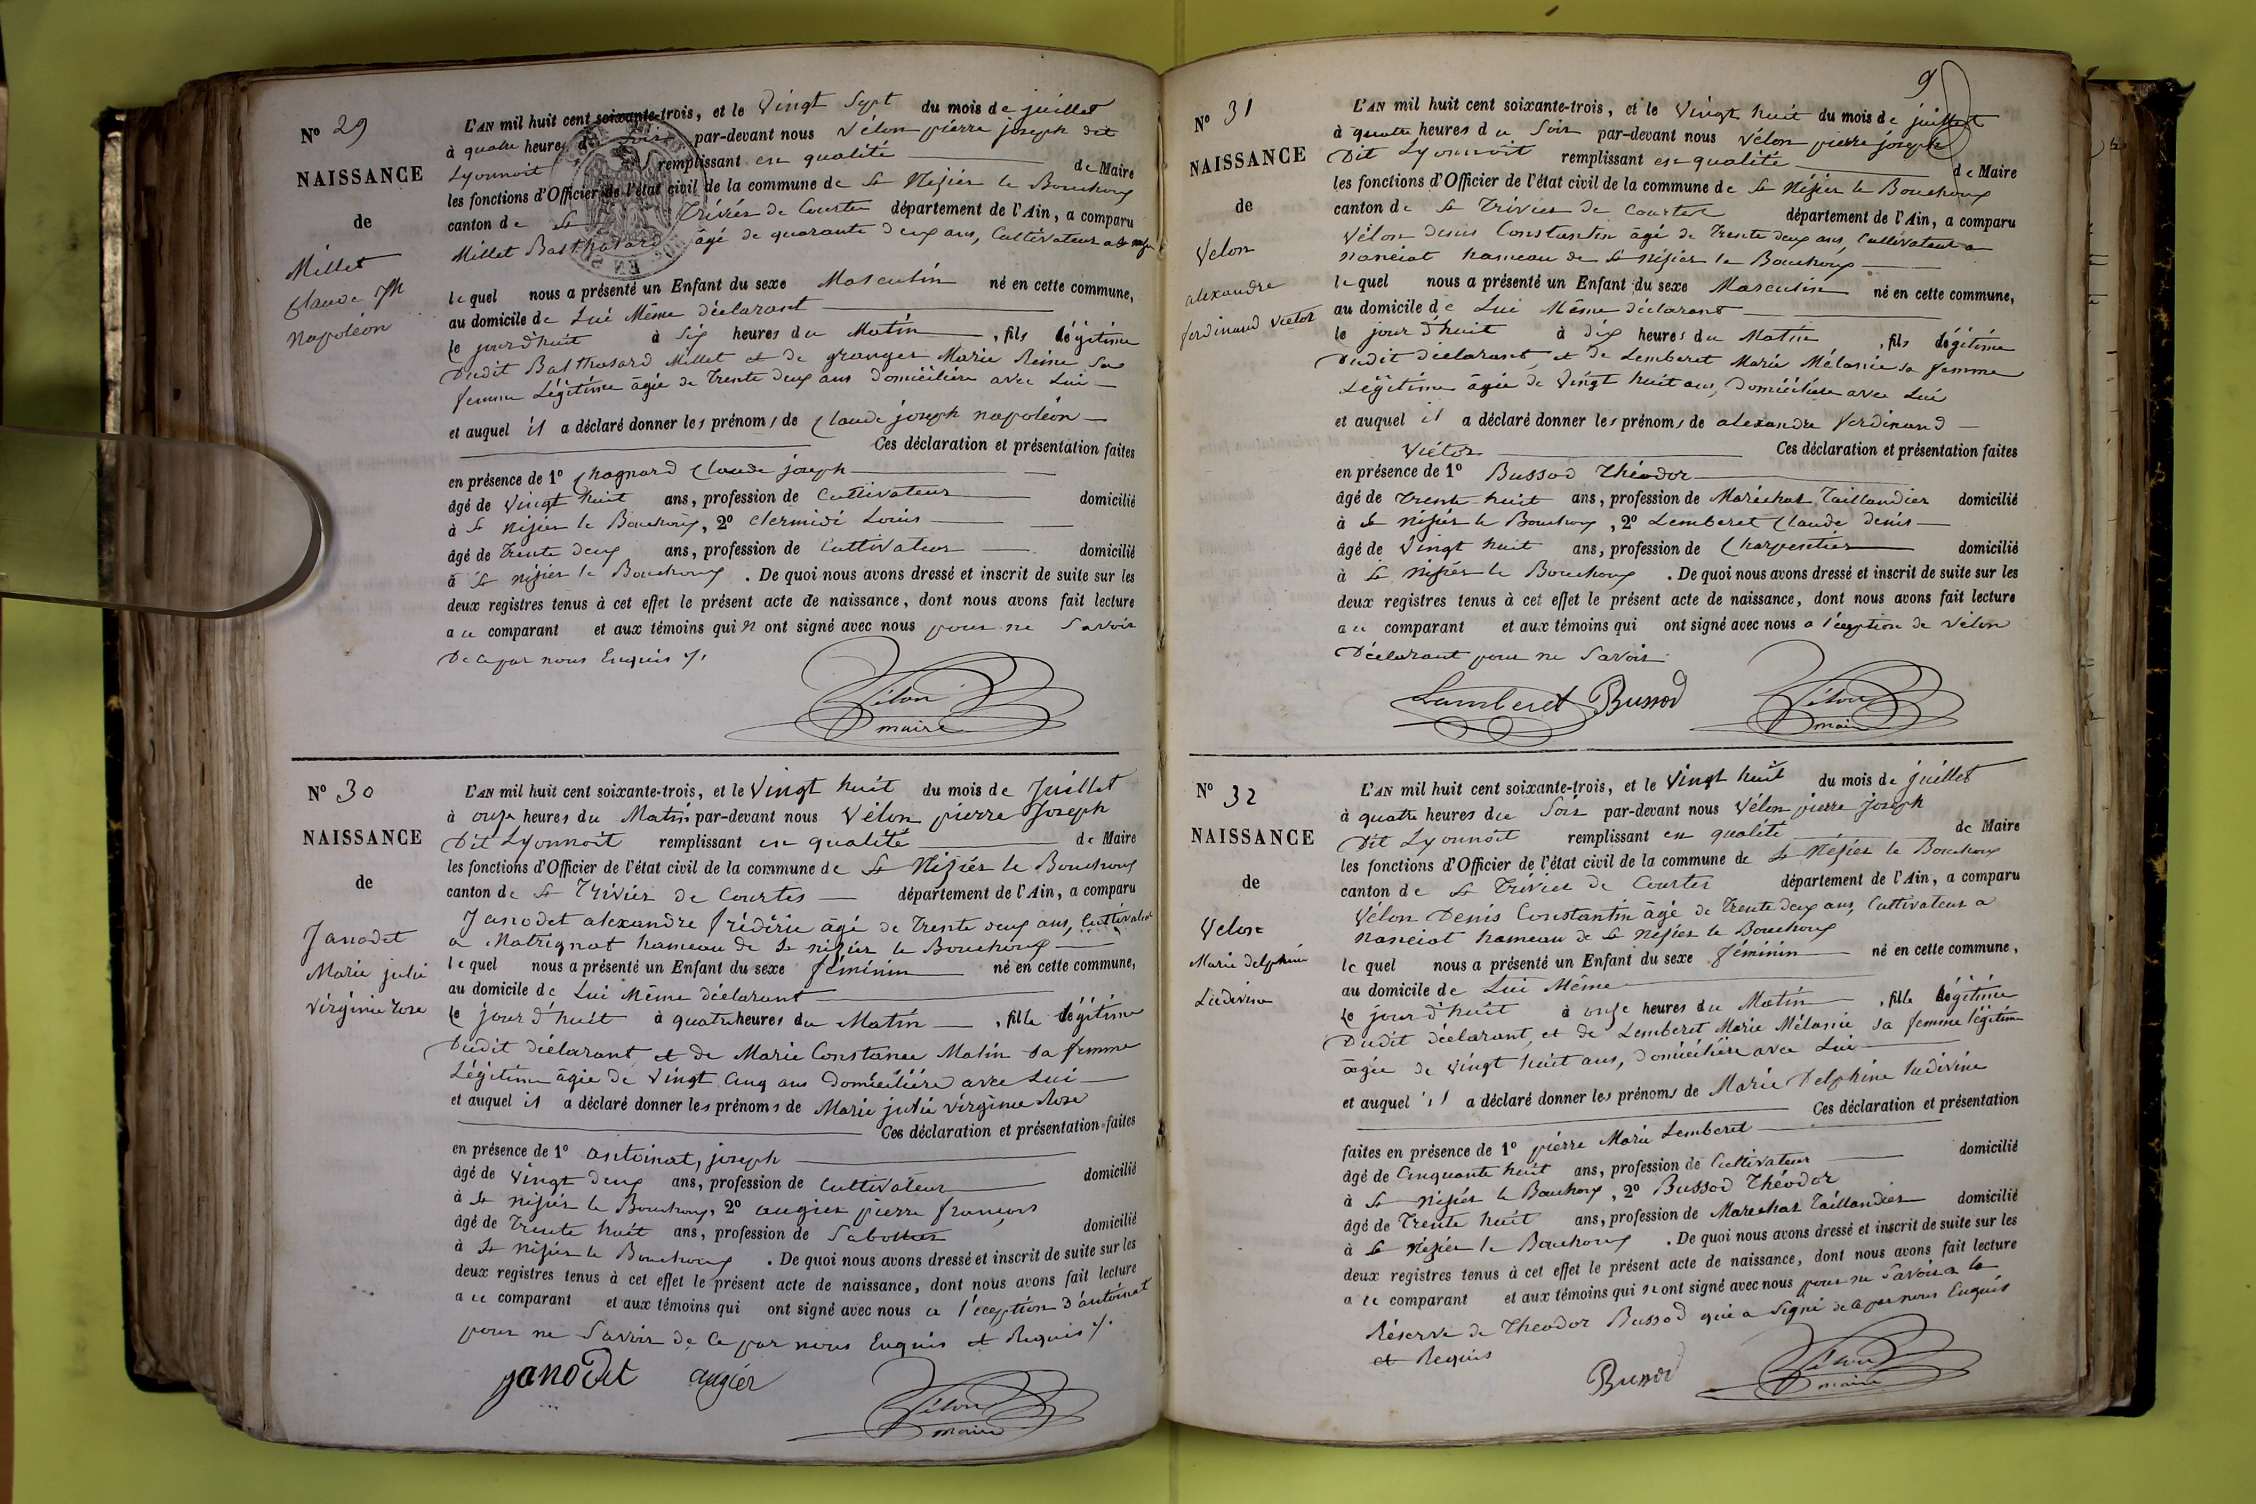 N° 29
NAISSANCE
de
Millet
Claude Jph
Napoléon
L'AN mil huit cent soixante-trois, et le Vingt Sept du mois de juillet
à quatre heures du soir par-devant nous Vélon pierre joseph dit
Lyonnoit remplissant en qualité de Maire
les fonctions d'Officier de l'état civil de la commune de St Nizier le Bouchoux
canton de St Trivier de Courtes département de l'Ain, a comparu
Millet Balthasard âgé de quarante deux ans, Cultivateur a
lequel nous a présenté un Enfant du sexe Masculin né en cette commune,
au domicile de Lui Même déclarant
le jourd'huit à six heures du Matin, fils légitime
Dudit Balthasard Millet et de granger Marie Reine Sa
femme Légitime âgée de Trente deux ans domicilière avec Lui
et auquel il a déclaré donner les prénoms de Claude joseph napoléon
Ces déclaration et présentation faites
en présence de 1° Chagnard Claude joseph
âgé de Vingt huit ans, profession de Cultivateur domicilié
à St Nizier le Bouchoux, 2° Clermidi Louis
âgé de Trente deux ans, profession de Cultivateur domicilié
à St Nizier le Bouchoux. De quoi nous avons dressé et inscrit de suite sur les
deux registres tenus à cet effet le présent acte de naissance, dont nous avons fait lecture
au comparant et aux témoins qui n ont signé avec nous pour ne Savoir
De ce par nous Enquis ./.
Vélon
maire
N° 30
NAISSANCE
de
Janodet
Marie julie
virginie rose
L'AN mil huit cent soixante-trois, et le Vingt huit du mois de Juillet
à onze heures du Matin par-devant nous Vélon pierre Joseph
Dit Lyonnoit remplissant en qualité de Maire
les fonctions d'Officier de l'état civil de la commune de St Nizier le Bouchoux
canton de St Trivier de Courtes département de l'Ain, a comparu
Janodet alexandre frédéric âgé de Trente deux ans, Cultivateur
a Matrignat hameau de St nizier le Bouchoux
lequel nous a présenté un Enfant du sexe féminin né en cette commune,
au domicile de Lui Même déclarant
le jour d'huit à quatre heures du Matin, fille légitime
Dudit déclarant et de Marie Constance Matin sa femme
Légitime âgée de Vingt Cinq ans Domicilière avec Lui
et auquel il a déclaré donner les prénoms de Marie julie virginie Rose
Ces déclaration et présentation faites
en présence de 1° antoinat, joseph
âgé de Vingt deux ans, profession de Cultivateur domicilié
à St Nizier le Bouchoux, 2° augier pierre françois
âgé de Trente huit ans, profession de Sabottier domicilié
à St Nizier le Bouchoux. De quoi nous avons dressé et inscrit de suite sur les
deux registres tenus à cet effet le présent acte de naissance, dont nous avons fait lecture
au comparant et aux témoins qui ont signé avec nous a l'éxception d'antoinat
pour ne Savoir de ce par nous Enquis et Requis ./.
janodet augier
Vélon
maire
9
N° 31
NAISSANCE
de
Velon
alexandre
ferdinand victor
L'AN mil huit cent soixante-trois, et le Vingt huit du mois de juillet
à quatre heures du Soir par-devant nous Vélon pierre joseph
Dit Lyonnoit remplissant en qualité de Maire
les fonctions d'Officier de l'état civil de la commune de St Nizier le Bouchoux
canton de St Trivier de Courtes département de l'Ain, a comparu
Vélon denis Constantin âgé de Trente deux ans, Cultivateur a
nanciat hameau de St nizier le Bouchoux
lequel nous a présenté un Enfant du sexe Masculin né en cette commune,
au domicile de Lui Même déclarant
le jour d'huit à dix heures du Matin, fils légitime
Dudit déclarant, et de Lemberet Marie Mélanie sa femme
Légitime âgée de Vingt huit ans, Domicilière avec Lui
et auquel il a déclaré donner les prénoms de alexandre ferdinand
Victor Ces déclaration et présentation faites
en présence de 1° Bussod Théodor
âgé de Trente huit ans, profession de Maréchal Taillandier domicilié
à St nizier le Bouchoux, 2° Lemberet Claude denis
âgé de Vingt huit ans, profession de Charpentier domicilié
à St Nizier le Bouchoux. De quoi nous avons dressé et inscrit de suite sur les
deux registres tenus à cet effet le présent acte de naissance, dont nous avons fait lecture
au comparant et aux témoins qui ont signé avec nous a l'éxception de Vélon
Déclarant pour ne Savoir
Lamberet Bussod
Vélon
maire
N° 32
NAISSANCE
de
Velon
Marie delphine
Ludivine
L'AN mil huit cent soixante-trois, et le Vingt huit du mois de juillet
à quatre heures du Soir par-devant nous Vélon pierre joseph
Dit Lyonnoit remplissant en qualité de Maire
les fonctions d'Officier de l'état civil de la commune de St Nizier le Bouchoux
canton de St Trivier de Courtes département de l'Ain, a comparu
Vélon Denis Constantin âgé de Trente deux ans, Cultivateur a
nanciat hameau de St Nizier le Bouchoux
lequel nous a présenté un Enfant du sexe féminin né en cette commune,
au domicile de Lui Même
le jour d'huit à onze heures du Matin, fille légitime
Dudit déclarant, et de Lemberet Marie Mélanie sa femme légitime
âgée de Vingt huit ans, domicilière avec Lui
et auquel il a déclaré donner les prénoms de Marie Delphine Ludivine
Ces déclaration et présentation
faites en présence de 1° pierre Marie Lemberet
âgé de Cinquante huit ans, profession de Cultivateur domicilié
à St Nizier le Bouchoux, 2° Bussod Théodor
âgé de Trente huit ans, profession de Marechal Taillandier domicilié
à St Nizier le Bouchoux. De quoi nous avons dressé et inscrit de suite sur les
deux registres tenus à cet effet le présent acte de naissance, dont nous avons fait lecture
au comparant et aux témoins qui n ont signé avec nous pour ne Savoir a la
Réserve de Theodor Bussod qui a Signé de ce par nous Enquis
et Requis
Bussod
Vélon
maire